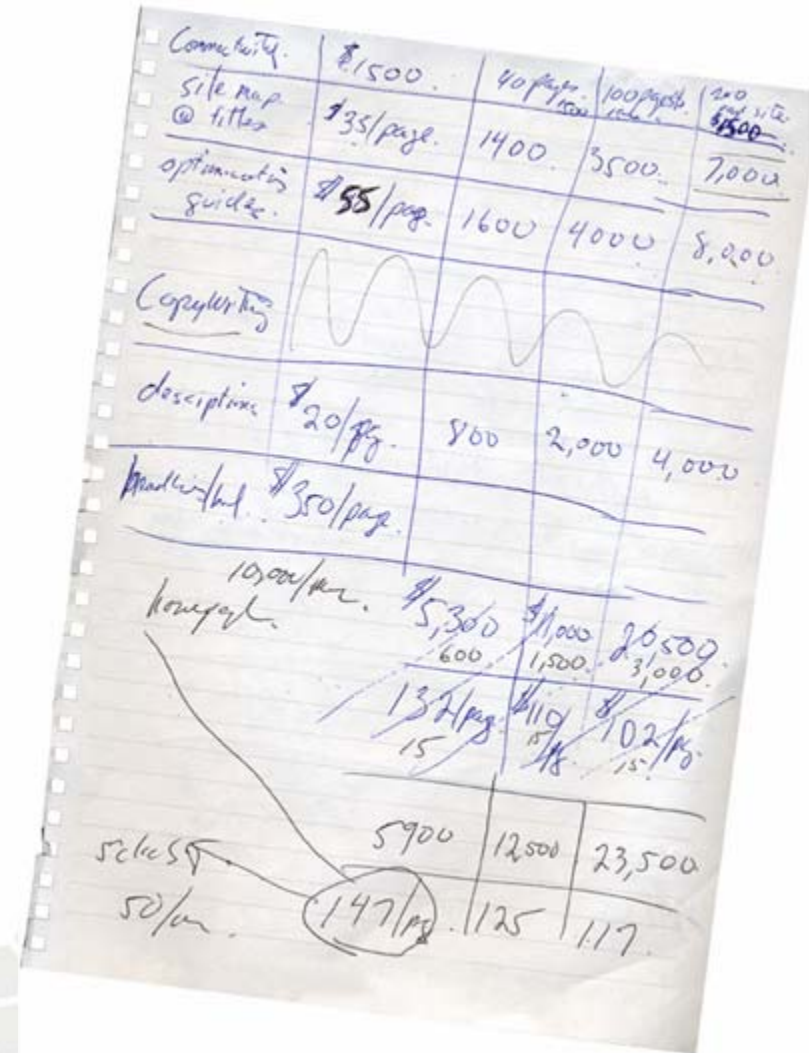 Connectivity. $1500. 40 pages. 100 page site 200 page site
1500 1500 $1500
site map @ titles $35/page. 1400. 3500. 7,000
optimization guides. $55/page. 1600 4000 8,000
Copywriting
descriptions $20/pg. 800 2,000 4,000
$350/page.
homepage. $5,300 $11,000 20,500
600 1,500. 3,000
132/page $110/pg $102/pg.
15 15 15
5900 12,500 23,500
147/pg. 125 117.
50/